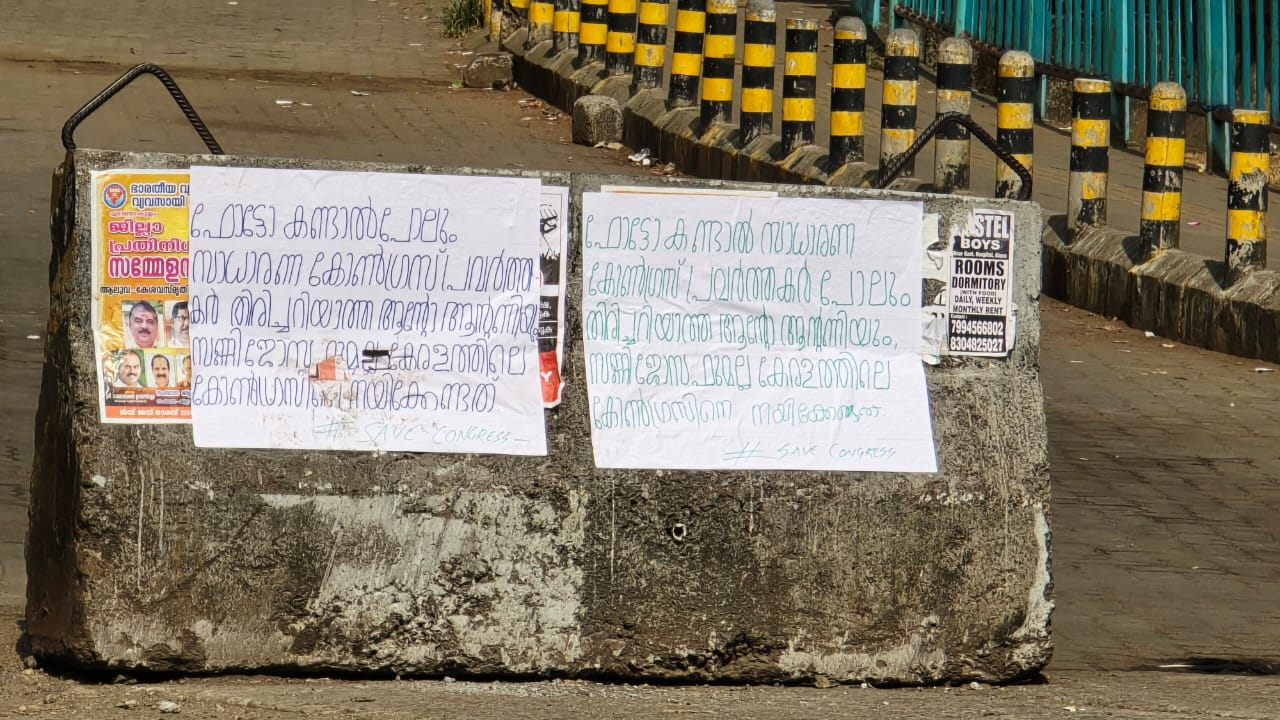 ഭാരതീയ വ്യ
വ്യവസായി
എറണാകുളം
ജില്ലാ
പ്രതിനിധ
സമ്മേളന
ആലുവ - കേശവസ്മൃതി
ഫോട്ടോ കണ്ടാൽപോലും
സാധാരണ കോൺഗ്രസ് പ്രവർത്ത
കർ തിരിച്ചറിയാത്ത ആന്റോ ആന്റണിയും
സണ്ണി ജോസഫുമല്ല കേരളത്തിലെ
കോൺഗ്രസിനെ നയിക്കേണ്ടത്
# SAVE CONGRESS
ഫോട്ടോ കണ്ടാൽ സാധാരണ
കോൺഗ്രസ് പ്രവർത്തകർ പോലും
തിരിച്ചറിയാത്ത ആന്റോ ആന്റണിയും,
സണ്ണി ജോസഫുമല്ല കേരളത്തിലെ
കോൺഗ്രസിനെ നയിക്കേണ്ടത്
# SAVE CONGRESS
OSTEL
BOYS
Near Govt. Hospital, Aluva
ROOMS
DORMITORY
(WITH FOOD)
DAILY, WEEKLY
MONTHLY RENT
Contact
7994566802
8304825027